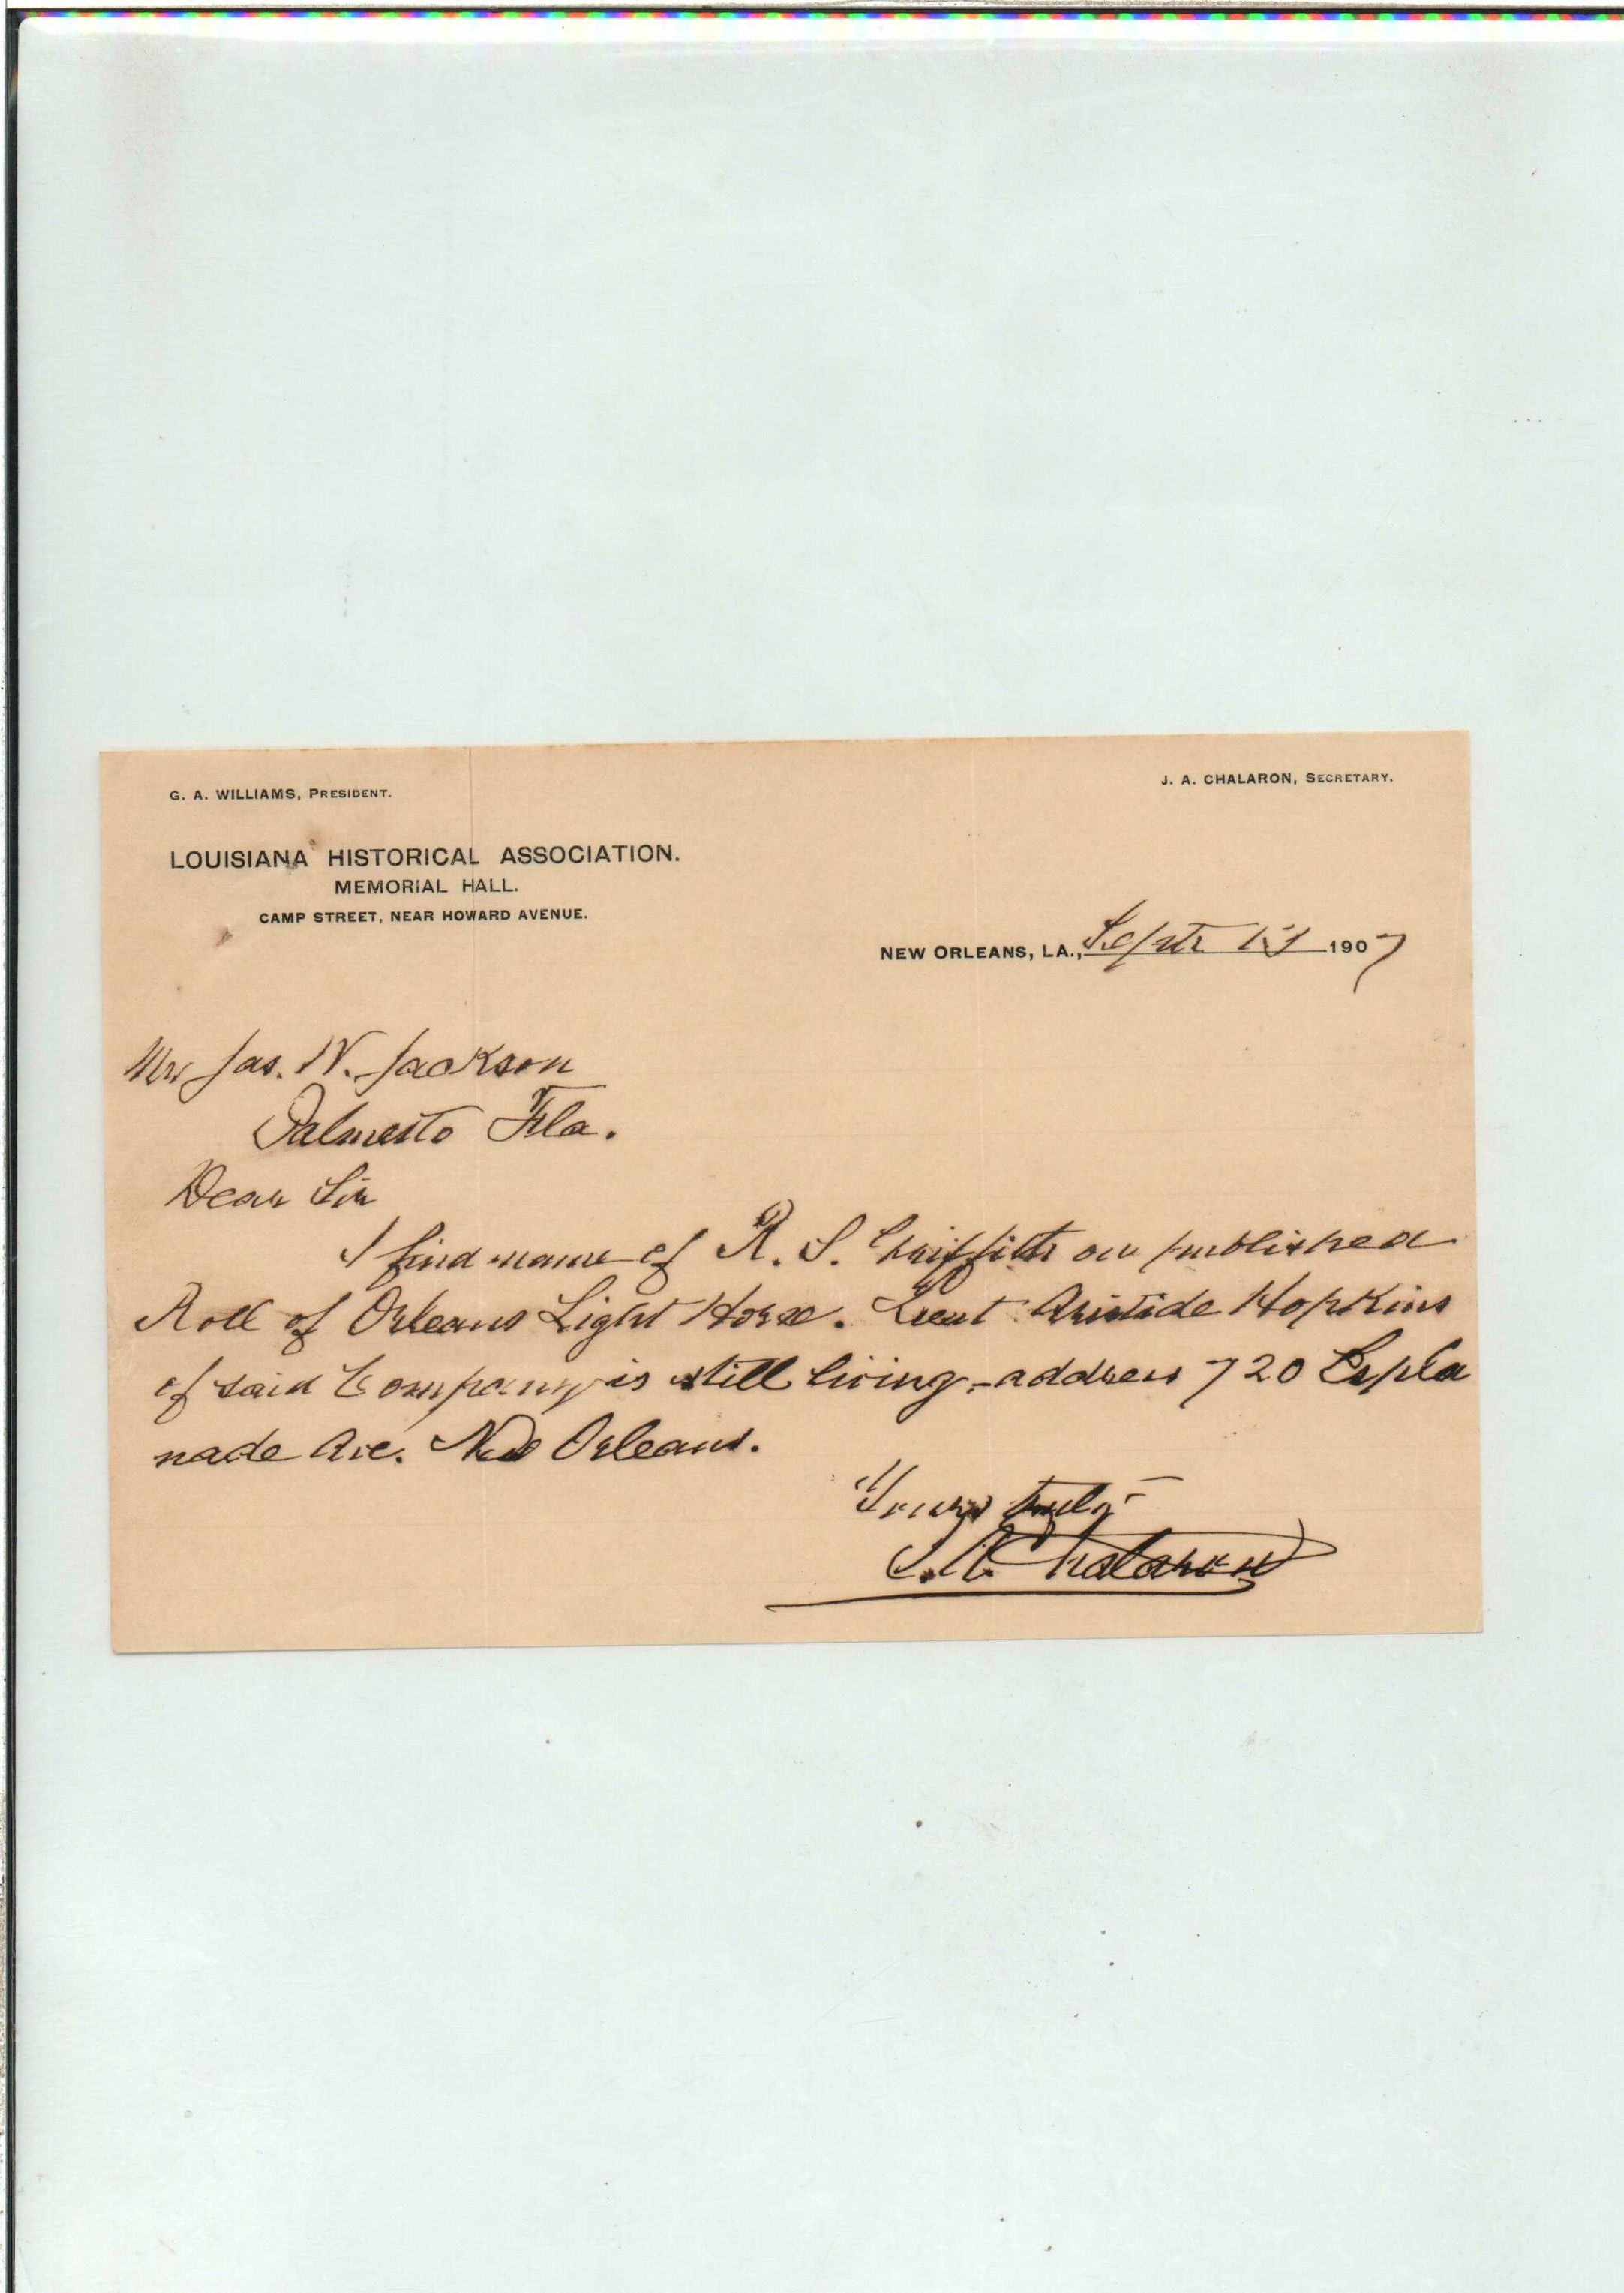 G. A. WILLIAMS, PRESIDENT.
J. A. CHALARON, SECRETARY.
LOUISIANA HISTORICAL ASSOCIATION.
MEMORIAL HALL.
CAMP STREET, NEAR HOWARD AVENUE.
NEW ORLEANS, LA., Septr 1907
Mr Jas. N. Jackson
Palmetto Fla.
Dear Sir
I find name of R. S. Griffith on published
Roll of Orleans Light Horse. Lieut Aristide Hopkins
of said Company is still living - address 720 Espla
nade Ave. New Orleans.
Yours truly
J. A. Chalaron